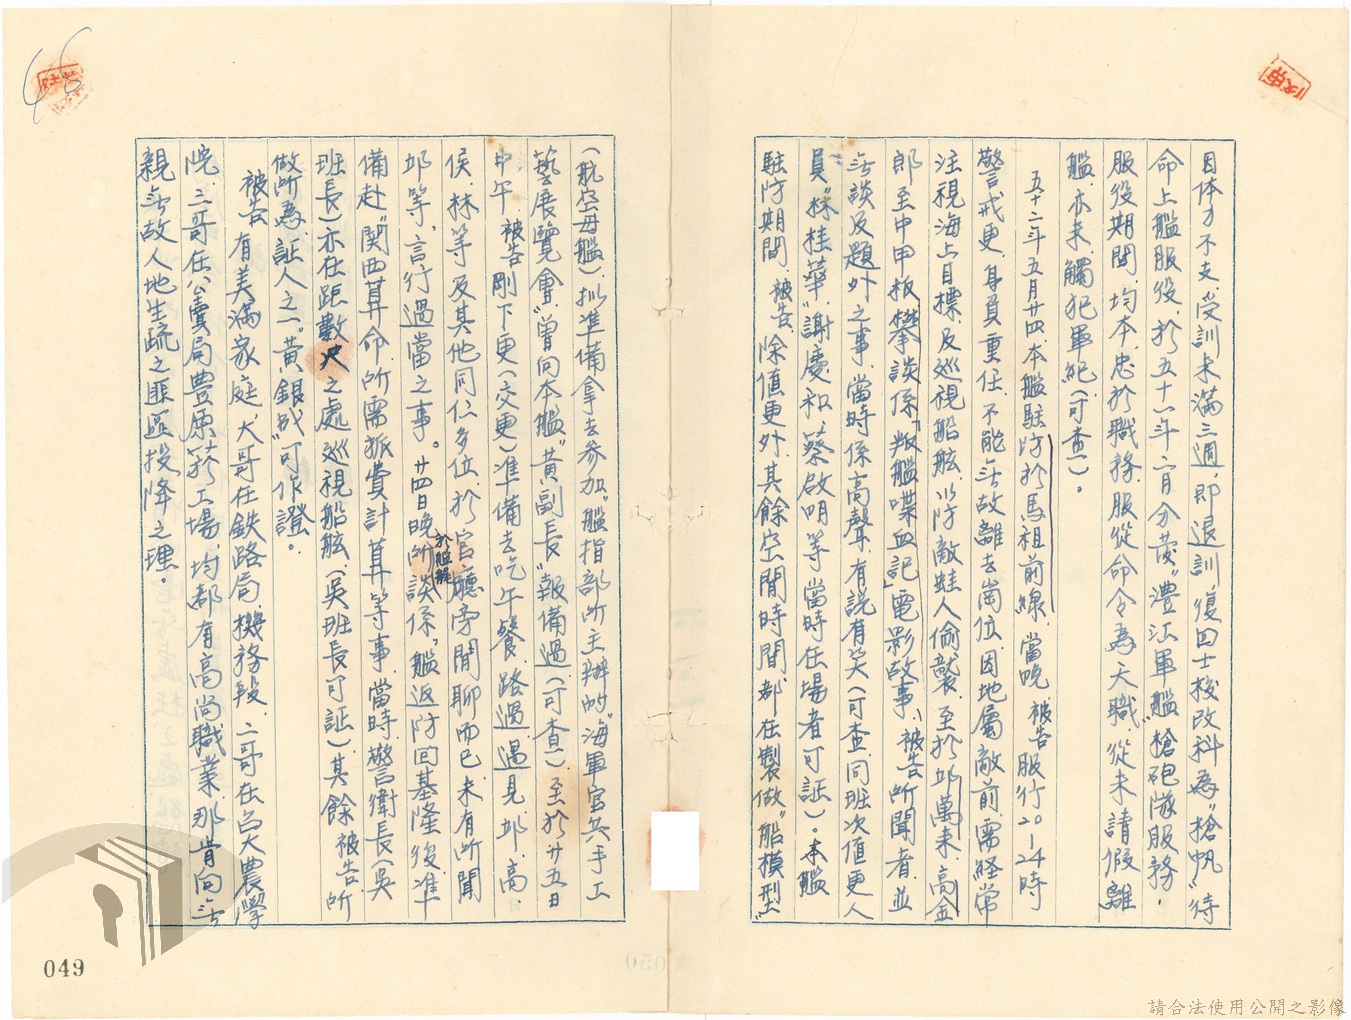 因体力不支、受訓未滿三週、即退訓、復回士校改科為"槍帆"待
命上艦服役、於五十一年二月分發"澧江軍艦"槍砲隊服務．
服役期間、均本忠於職務、服從命令為天職、從未請假離
艦、亦未觸犯軍紀（可查）。
五十二年五月廿四本艦駐防於馬祖前線、當晚、被告服行20-24時
警戒更、身負重任、不能無故離去崗位、因地屬敵前、需経常
注視海上目標、及巡視船舷、以防敵蛙人偷襲、至於邱萬来、高金
郎至中甲板攀談係「叛艦喋血記」電影故事、被告所聞者、並
無談及題外之事、當時係高聲、有說有笑（可查、同班次值更人
員"林桂華"、謝慶和、蔡啟明等當時在場者可証）。本艦
駐防期間、被告、除值更外、其餘空閒時間、都在製做"船模型"
（航空母艦）、拟準備拿去參加"艦指部所主辦的"海軍官兵手工
藝展覽會"、曾向本艦"黃副長"報備過（可查）、至於廿五日
中午、被告剛下更（交更）準備去吃午餐、路過遇見邱、高、
侯、林等、及其他同仁多位、於官廳旁閒聊而已、未有所聞
邱等、言行過當之事。廿四日晚於艦艉所談係"艦返防回基隆後、準
備赴"関西算命所需旅費計算等事、當時、警衛長（吳
班長）亦在距數尺之處巡視船舷、（吳班長可証）、其餘被告所
做所為証人之一。黃銀成"可作證。
被告有美滿家庭、大哥在鉄路局機務段、二哥在台大農學
院、三哥在公賣局豊原菸工場、均都有高尚職業、那肯向無
親無故人地生疏之匪區投降之理。
049
請合法使用公開之影像